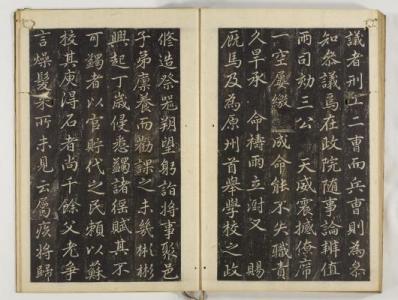 議者刑工二曹而兵曹則為叅
知叅議焉在政院隨事論辨值
兩司劾三公 天威震撼僚席
一空屢繳 成命能不失職責
久旱承 命禱雨立澍又 賜
廐馬及為原州首舉學校之政
修造祭器朔望躬詣將事聚邑
子弟廩養而勸課之未幾彬彬
興起丁歲侵悉蠲諸徭賦其不
可蠲者以官貯代之民賴以蘇
校其庚得石者尚千餘父老爭
言燥髮來所未見云屬疾將歸